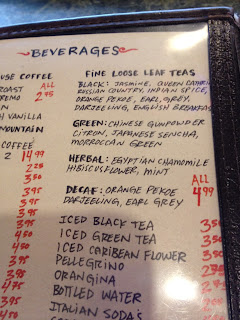 BEVERAGES
USE COFFEE
ROAST ALL
REMO 2 75
H VANILLA
MOUNTAIN
COFFEE
2 14 99
2 25
4 50
3 95
4 50
3 95
4 50
3 95
3 95
4 75
4 50
3 95
FINE LOOSE LEAF TEAS
BLACK: JASMINE, QUEEN CATHERINE
RUSSIAN COUNTRY, INDIAN SPICE,
ORANGE PEKOE, EARL GREY,
DARJEELING, ENGLISH BREAKFAST
GREEN: CHINESE GUNPOWDER
CITRON, JAPANESE SENCHA,
MORROCCAN GREEN
HERBAL: EGYPTIAN CHAMOMILE
HIBISCUS FLOWER, MINT
ALL
DECAF: ORANGE PEKOE 4 99
DARJEELING, EARL GREY
ICED BLACK TEA 3 50
ICED GREEN TEA 3 50
ICED CARIBEAN FLOWER 3 50
PELLEGRINO 2 75
ORANGINA 2 75
BOTTLED WATER
ITALIAN SODA'S